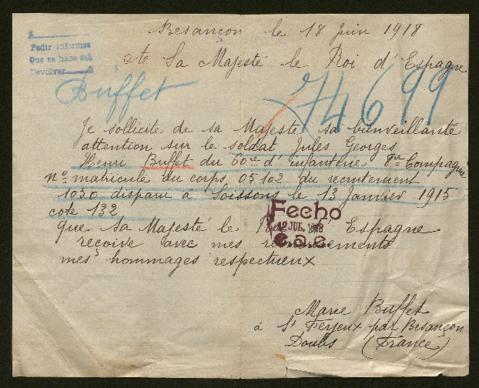 Besançon le 18 Juin 1918
A Sa Majesté le Roi d'Espagne
Pedir informes
Que se hace cui
Devolver
Buffet
74699
Je sollicite de sa Majesté sa bienveillante
attention sur le soldat Jules Georges
Henri Buffet du 60me d'infanterie 8me Compagnie
no matricule du corps 05102 du recrutement
1030 disparu à Soissons le 13 Janvier 1915
cote 132
que sa Majesté le Espagne
reçoive avec mes
mes hommages respectueux
Fecho
JUL. 1918
Marie Buffet
à St Ferjeux par Besançon
Doubs (France)